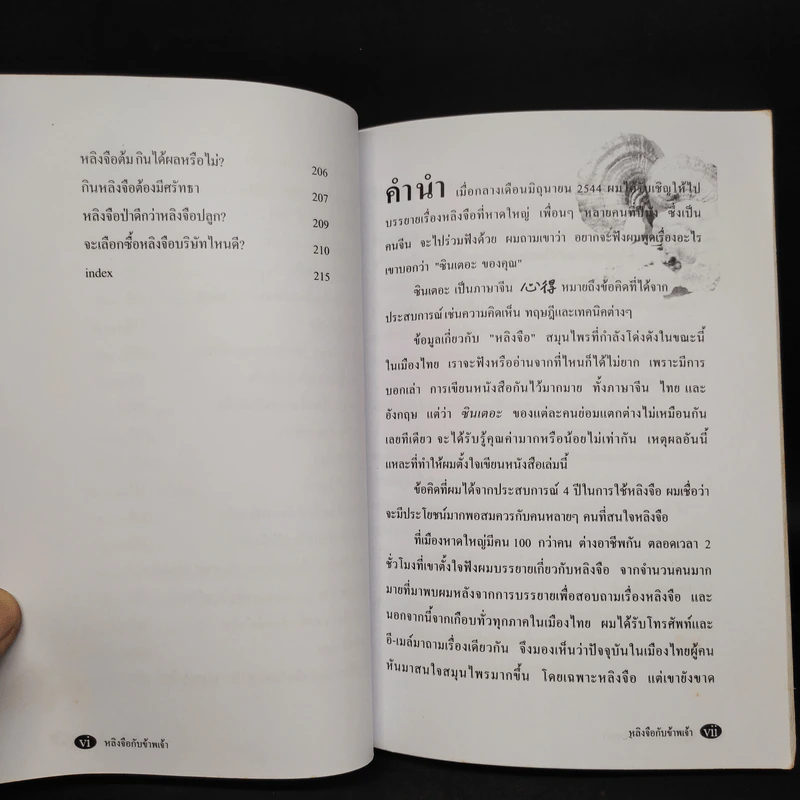 หลิงจือต้ม กินได้ผลหรือไม่? 206
กินหลิงจือต้องมีศรัทธา 207
หลิงจือป่าดีกว่าหลิงจือปลูก? 209
จะเลือกซื้อหลิงจือบริษัทไหนดี? 210
index 215
vi หลิงจือกับข้าพเจ้า
คำนำ เมื่อกลางเดือนมิถุนายน 2544 ผมได้รับเชิญให้ไป
บรรยายเรื่องหลิงจือที่หาดใหญ่ เพื่อนๆ หลายคนที่ปีนัง ซึ่งเป็น
คนจีน จะไปร่วมฟังด้วย ผมถามเขาว่า อยากจะฟังผมพูดเรื่องอะไร
เขาบอกว่า "ซินเตอะ ของคุณ"
ซินเตอะ เป็นภาษาจีน 心得 หมายถึงข้อคิดที่ได้จาก
ประสบการณ์ เช่นความคิดเห็น ทฤษฎีและเทคนิคต่างๆ
ข้อมูลเกี่ยวกับ "หลิงจือ" สมุนไพรที่กำลังโด่งดังในขณะนี้
ในเมืองไทย เราจะฟังหรืออ่านจากที่ไหนก็ได้ไม่ยาก เพราะมีการ
บอกเล่า การเขียนหนังสือกันไว้มากมาย ทั้งภาษาจีน ไทย และ
อังกฤษ แต่ว่า ซินเตอะ ของแต่ละคนย่อมแตกต่างไม่เหมือนกัน
เลยทีเดียว จะได้รับรู้คุณค่ามากหรือน้อยไม่เท่ากัน เหตุผลอันนี้
แหละที่ทำให้ผมตั้งใจเขียนหนังสือเล่มนี้
ข้อคิดที่ผมได้จากประสบการณ์ 4 ปีในการใช้หลิงจือ ผมเชื่อว่า
จะมีประโยชน์มากพอสมควรกับคนหลายๆ คนที่สนใจหลิงจือ
ที่เมืองหาดใหญ่มีคน 100 กว่าคน ต่างอาชีพกัน ตลอดเวลา 2
ชั่วโมงที่เขาตั้งใจฟังผมบรรยายเกี่ยวกับหลิงจือ จากจำนวนคนมาก
มายที่มาพบผมหลังจากการบรรยายเพื่อสอบถามเรื่องหลิงจือ และ
นอกจากนี้จากเกือบทั่วทุกภาคในเมืองไทย ผมได้รับโทรศัพท์และ
อี-เมล์มาถามเรื่องเดียวกัน จึงมองเห็นว่าปัจจุบันในเมืองไทยผู้คน
หันมาสนใจสมุนไพรมากขึ้น โดยเฉพาะหลิงจือ แต่เขายังขาด
หลิงจือกับข้าพเจ้า vii